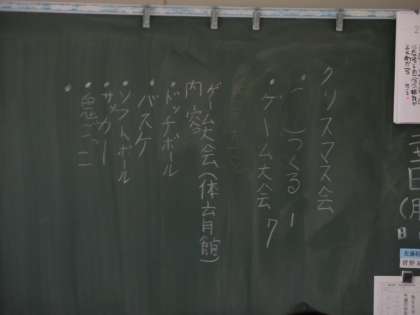 クリスマス会
・　つくる 1
・ゲーム大会 7
ゲーム大会(体育館)
内容
・ドッチボール
・バスケ
・ソフトボール
・サッカー
・鬼ごっこ
・
日(月